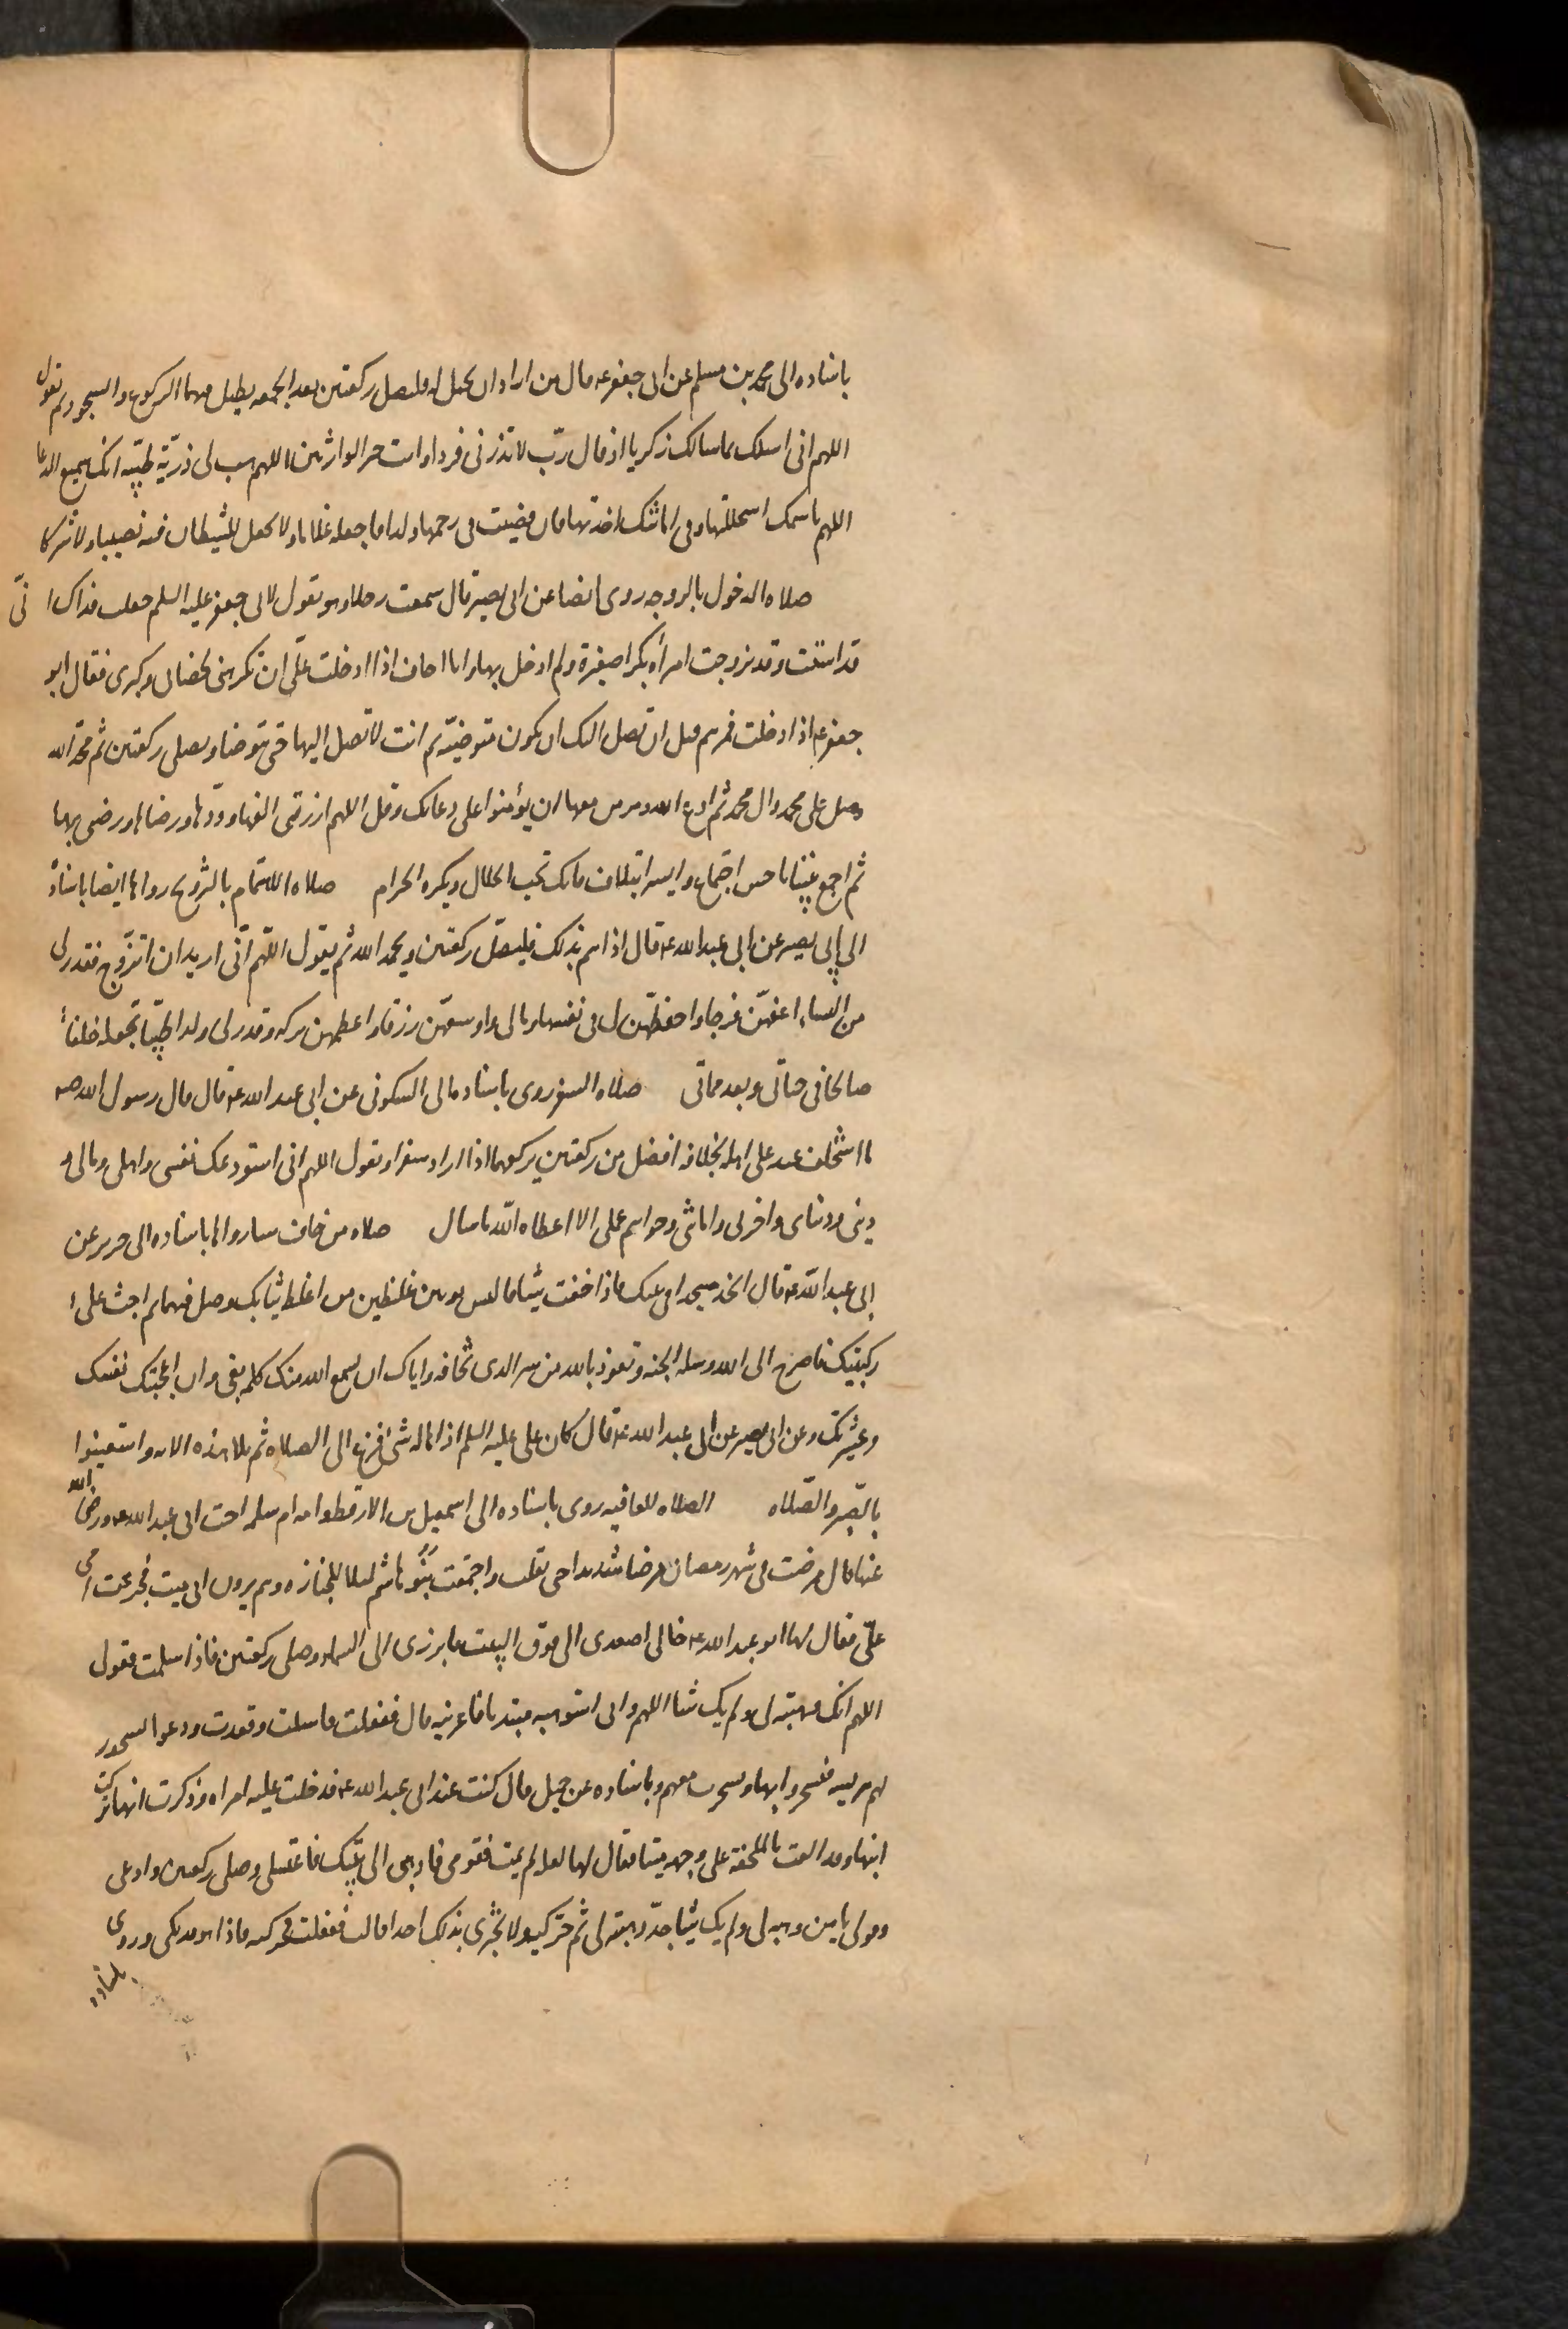 باسناده الى محمد بن مسلم عن ابى جعفر ع قال من اراد ان يحبل له فليصل ركعتين بعد الجمعه يطيل فيهما الركوع والسجود ثم تقول
اللهم انى اسلك بما سالك زكريا اذ قال ربّ لا تذرنى فردا وانت خير الوارثين اللهم هب لى ذريّة طيّبه انك سميع الدعا
اللهم باسمك استحللتها وفى امانتك اخذتها فان قضيت فى رحمها ولدا فاجعله غلاما ولا تجعل للشيطان فيه نصيبا ولا شركا
صلاه الدخول بالزوجه روى ايضا عن ابى بصير قال سمعت رجلا وهو يقول لابى جعفر عليه السلم جعلت فداك انّى
قد اسننت وقد تزوجت امرأه بكرا صغيرة ولم ادخل بها وانا اخاف اذا ادخلت علىّ ان تكرهنى لخضابى وكبرى فقال ابو
جعفر ع اذا دخلت فمرهم قبل ان تصل اليك ان يكون متوضيّه ثم انت لا تصل اليها حتى تتوضا وتصلى ركعتين ثم مجّد الله
وصل على محمد وال محمد ثم ادع الله ومر من معها ان يؤمنوا على دعائك وقل اللهم ارزقنى الفها وودّها ورضاها ورضنى بها
ثم اجمع بيننا باحسن اجتماع وايسر ائتلاف فانك تحب الحلال وتكره الحرام صلاه الاهتمام بالتزويج رواها ايضا باسناده
الى ابى بصير عن ابى عبد الله ع قال اذا هم بذلك فليصلّ ركعتين ويحمد الله ثم يقول اللّهم انّى اريد ان اتزوّج فقدر لى
من النساء اعفهّن فرجا واحفظهّن لى فى نفسها ومالى واوسعهّن رزقا واعظمهن بركه وقدر لى ولدا طيّبا تجعله خلفاً
صالحا فى حياتى وبعد مماتى صلاه السفر روى باسناده الى السكونى عن ابى عبد الله ع قال قال رسول الله صه
ما استخلف عبد على اهله بخلافه افضل من ركعتين يركعهما اذا اراد سفرا وتقول اللهم انى استودعك نفسى واهلى ومالى و
دينى ودنياى واخرتى وامانتى وخواتيم عملى الا اعطاه اللّه ما سال صلاه من خاف شيا رواها باسناده الى حريز عن
ابى عبد اللّه ع قال اتخذ مسجدا فى بيتك فاذا خفت شيئا فالبس ثوبين غليظين من اغلظ ثيابك وصل فيهما ثم اجث على
ركبتيك فاصرخ الى الله وسله الجنه وتعوذ بالله من شر الذى تخافه واياك ان يسمع الله منك كلمه بغى وان اعجبتك نفسك
وعشيرتك وعن ابى بصير عن ابى عبد الله ع قال كان على عليه السلم اذا هاله شى فزع الى الصلاه ثم تلا هذه الايه واستعينوا
بالصّبر والصّلاه الصلاه للعافيه روى باسناده الى اسمعيل بن الارقط وامه ام سلمه اخت ابى عبد الله ع ورضى الله
عنها قال مرضت فى شهر رمضان مرضا شديدا حتى ثقلت واجتمعت بنُو هاشم ليلا للجنازه وهم يرون انى ميت فجزعت امى
علىّ فقال لها ابو عبد الله ع خالى اصعدى الى فوق البيت فابرزى الى السماء وصلى ركعتين فاذا سلمت فقولى
اللهم انك وهبته لى ولم يك شيا اللهم وانى استوهبه مبتدئا فاعرنيه قال ففعلت فافقت وقعدت ودعوا بسحور
لهم هريسه فتسحروا بها وتسحرت معهم وباسناده عن جميل قال كنت عند ابى عبد الله ع فدخلت عليه امراه وذكرت انها تركت
ابنها وقد القت بالملحفة على وجهه ميتا فقال لها لعله لم يمت فقومى فاذهبى الى بيتك فاغتسلى وصلى ركعتين وادعى
وقولى يا من وهبه لى ولم يك شيا جدّد هبته لى ثم حرّكيه ولا تخبرى بذلك احدا قالت ففعلت فحركته فاذا هو قد بكى وروى
باسناده